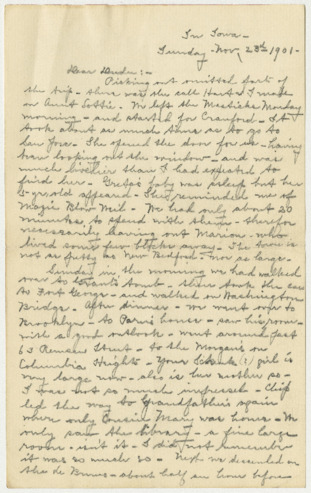 In Iowa -
Sunday - Nov. 23rd 1901 -
Dear Dude :-
Picking out omitted part of
the trip - there was the call Harter I made
on Aunt Lottie. We left the Mesticks Monday
morning - and started for Cranford - It
took about as much time as to go to
San Jose. She opened the door for us - having
been looking out the window - and was
much livelier than I had expected to
find her. baby was asleep but her
5 yr old appeared. She reminded me of
Magie Blow Neil. We had only about 20
minutes to spend with them - therefor
necessarily leaving out Marion - who
lived some few blocks away - The town is
not as pretty as New Bedford - nor as large -
Sunday in the morning we had walked
over to Grant's tomb - then took the car
to Fort George - and walked on Washington
Bridge. After dinner - we went over to
Brooklyn - to Paris house - saw his room -
with a good outlook - went around past
63 Remsen Street - to the Morgan's on
Columbia Heights - Your (?) girl is
very large now - also is her mother so -
I was not so much impressed - Chip
led the way to Grandfather's again
where only Cousin Mary was home - We
only saw the library - a fine large
room - isn't it - I did not remember
it was so much so - Next we descended on
the de - about half an hour before